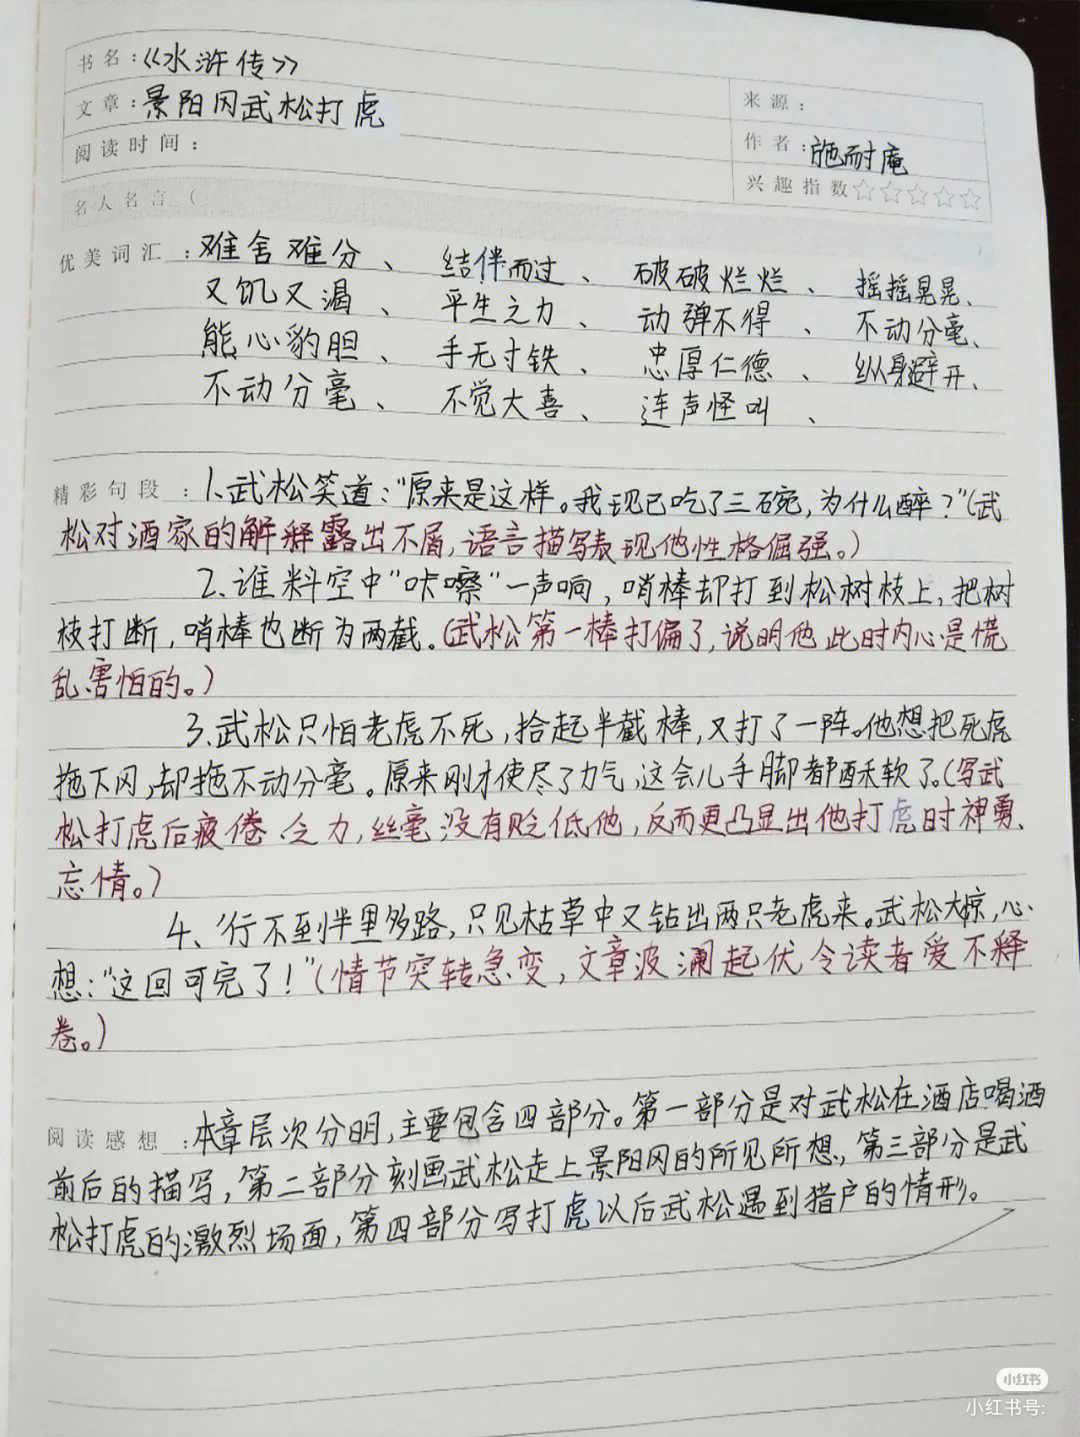 书名：《水浒传》
文章：景阳冈武松打虎
来源：
阅读时间：
作者：施耐庵
兴趣指数☆☆☆☆☆
名人名言（
）
优美词汇：难舍难分、结伴而过、破破烂烂、摇摇晃晃、
又饥又渴、平生之力、动弹不得、不动分毫、
熊心豹胆、手无寸铁、忠厚仁德、纵身避开、
不动分毫、不觉大喜、连声怪叫、
精彩句段：1、武松笑道：“原来是这样。我现已吃了三碗，为什么醉？”（武
松对酒家的解释露出不屑，语言描写表现他性格倔强。）
2、谁料空中“咔嚓”一声响，哨棒却打到松树枝上，把树
枝打断，哨棒也断为两截。（武松第一棒打偏了，说明他此时内心是慌
乱害怕的。）
3、武松只怕老虎不死，拾起半截棒，又打了一阵。他想把死虎
拖下冈，却拖不动分毫。原来刚才使尽了力气，这会儿手脚都酥软了。（写武
松打虎后疲倦、乏力，丝毫没有贬低他，反而更凸显出他打虎时神勇、
忘情。）
4、行不到半里多路，只见枯草中又钻出两只老虎来。武松大惊，心
想：“这回可完了！”（情节突转急变，文章波澜起伏令读者爱不释
卷。）
阅读感想：本章层次分明，主要包含四部分。第一部分是对武松在酒店喝酒
前后的描写，第二部分刻画武松走上景阳冈的所见所想，第三部分是武
松打虎的激烈场面，第四部分写打虎以后武松遇到猎户的情形。
小红书
小红书号：